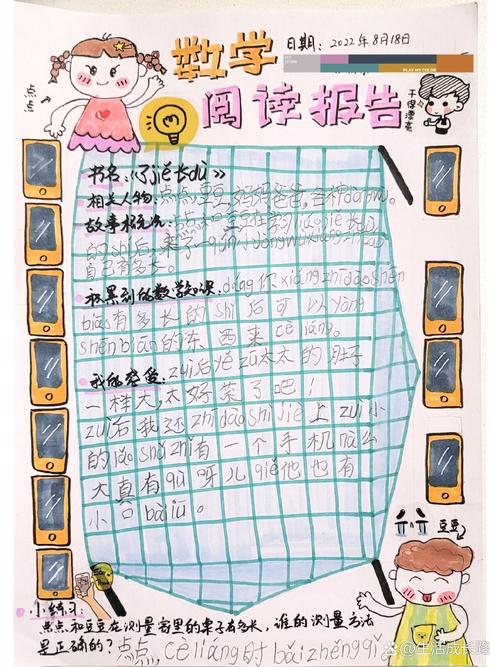 数学
日期：2022年8月18日
PLAY MY COLOR
阅读报告
点点
干得漂亮
书名：《了jiě长dù》
相关人物：点点，豆豆，妈妈爸爸，各种dòngwù。
故事梗概：点点和豆豆在学习liǎo jiě长dù
的shí后，来了一qún dòngwù
自己有多长。
积累到的数学知识：dāng你xiǎng zhī dào shēn
biān有多长的shí后可以yòng
shēn biān的东西来cè liáng。
我的感受：zuì后 太太的肚子
一样大，太好笑了吧！
zuì后我还zhī dào shì jiè上zuì小
的 有一个手机nà么
大真有qù呀儿qiě他也有
小口
豆豆
小练习：
点点和豆豆在测量家里的桌子有多长，谁的测量方法
是正确的？点点，cè liáng时
@生活成长路